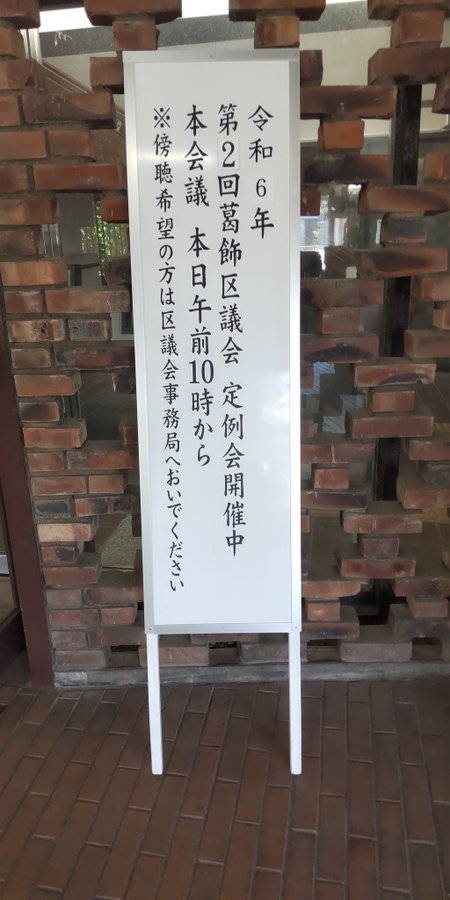 令和6年
第2回葛飾区議会 定例会開催中
本会議 本日午前10時から
※傍聴希望の方は区議会事務局へおいでください